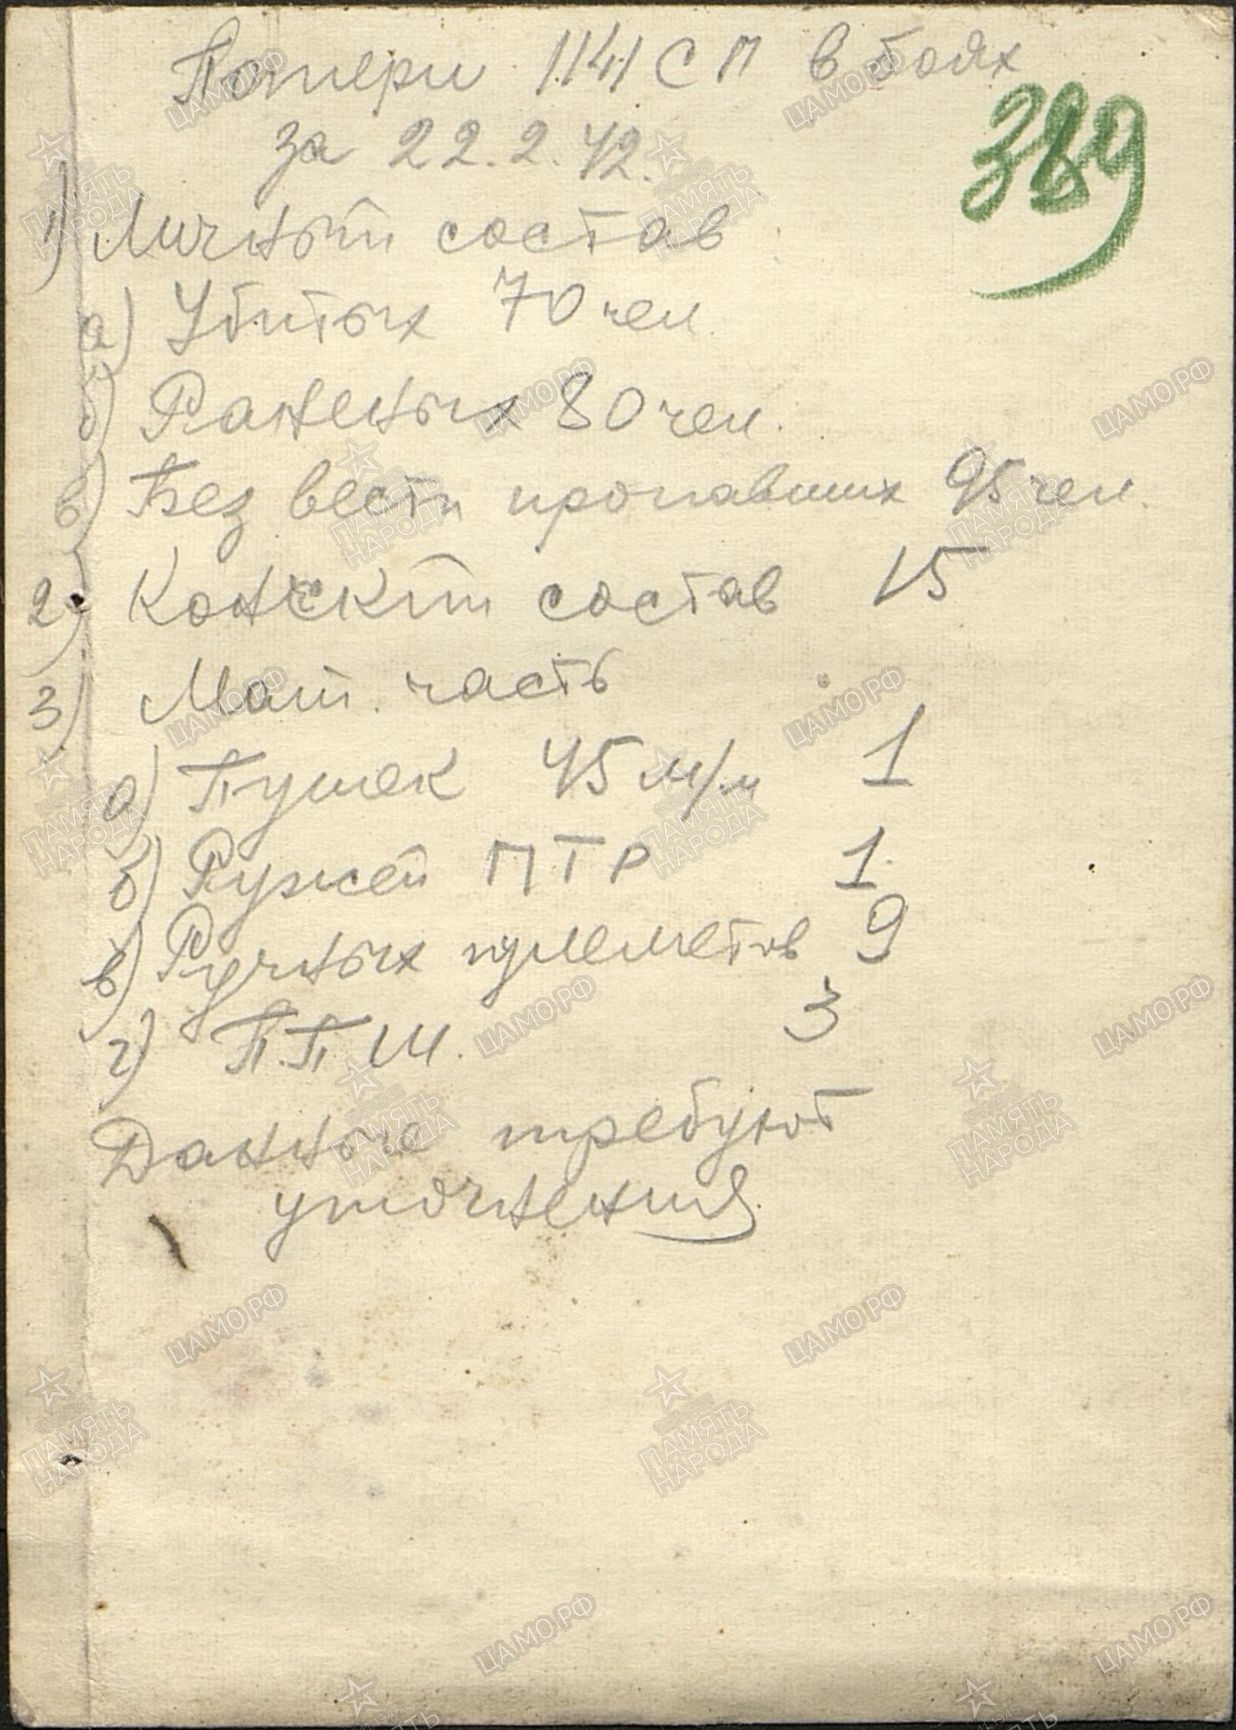 Потери 1141 СП в боях
за 22.2.42.
389
1) Личный состав
а) Убитых 70 чел
б) Раненых 80 чел.
в) Без вести пропавших 95 чел.
2) Конский состав 15
3) Мат. часть
а) Пушек 45 м/м 1
б) Ружей ПТР 1.
в) Ручных пулеметов 9
г) П.П.Ш. 3
Данные требуют
уточнения.